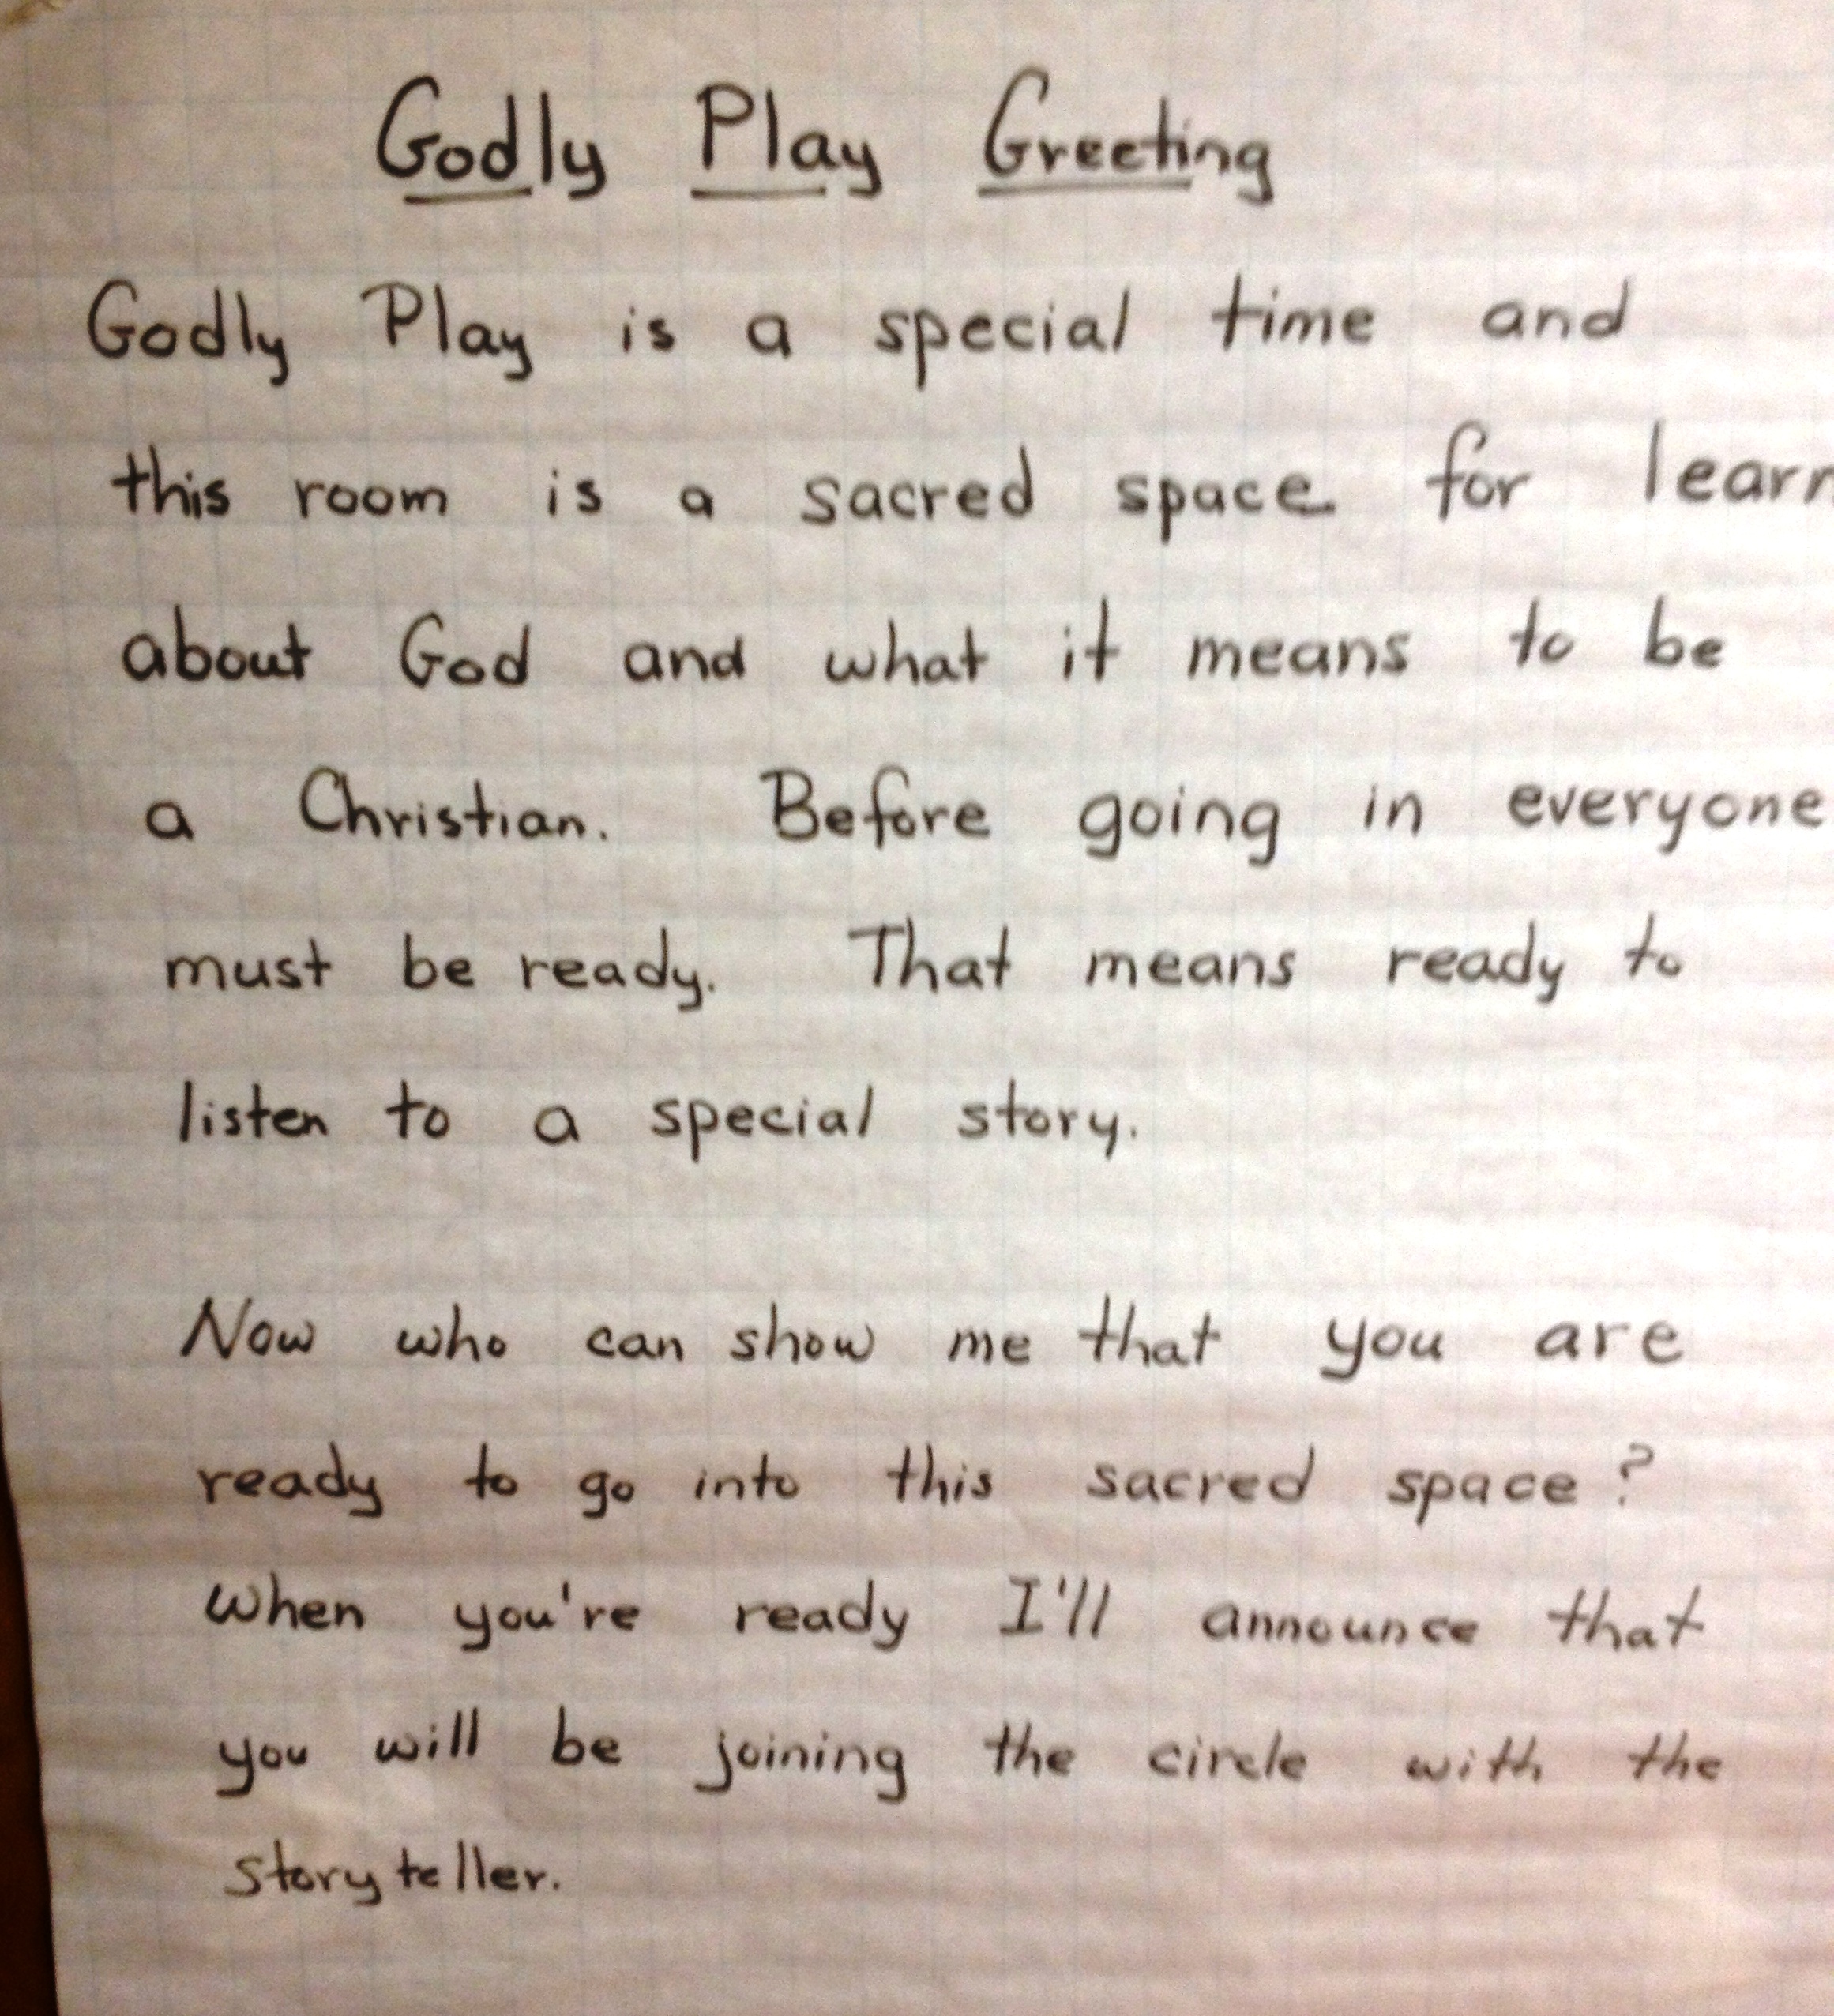 Godly Play Greeting
Godly Play is a special time and
this room is a sacred space for learn
about God and what it means to be
a Christian. Before going in everyone
must be ready. That means ready to
listen to a special story.
Now who can show me that you are
ready to go into this sacred space?
When you're ready I'll announce that
you will be joining the circle with the
storyteller.